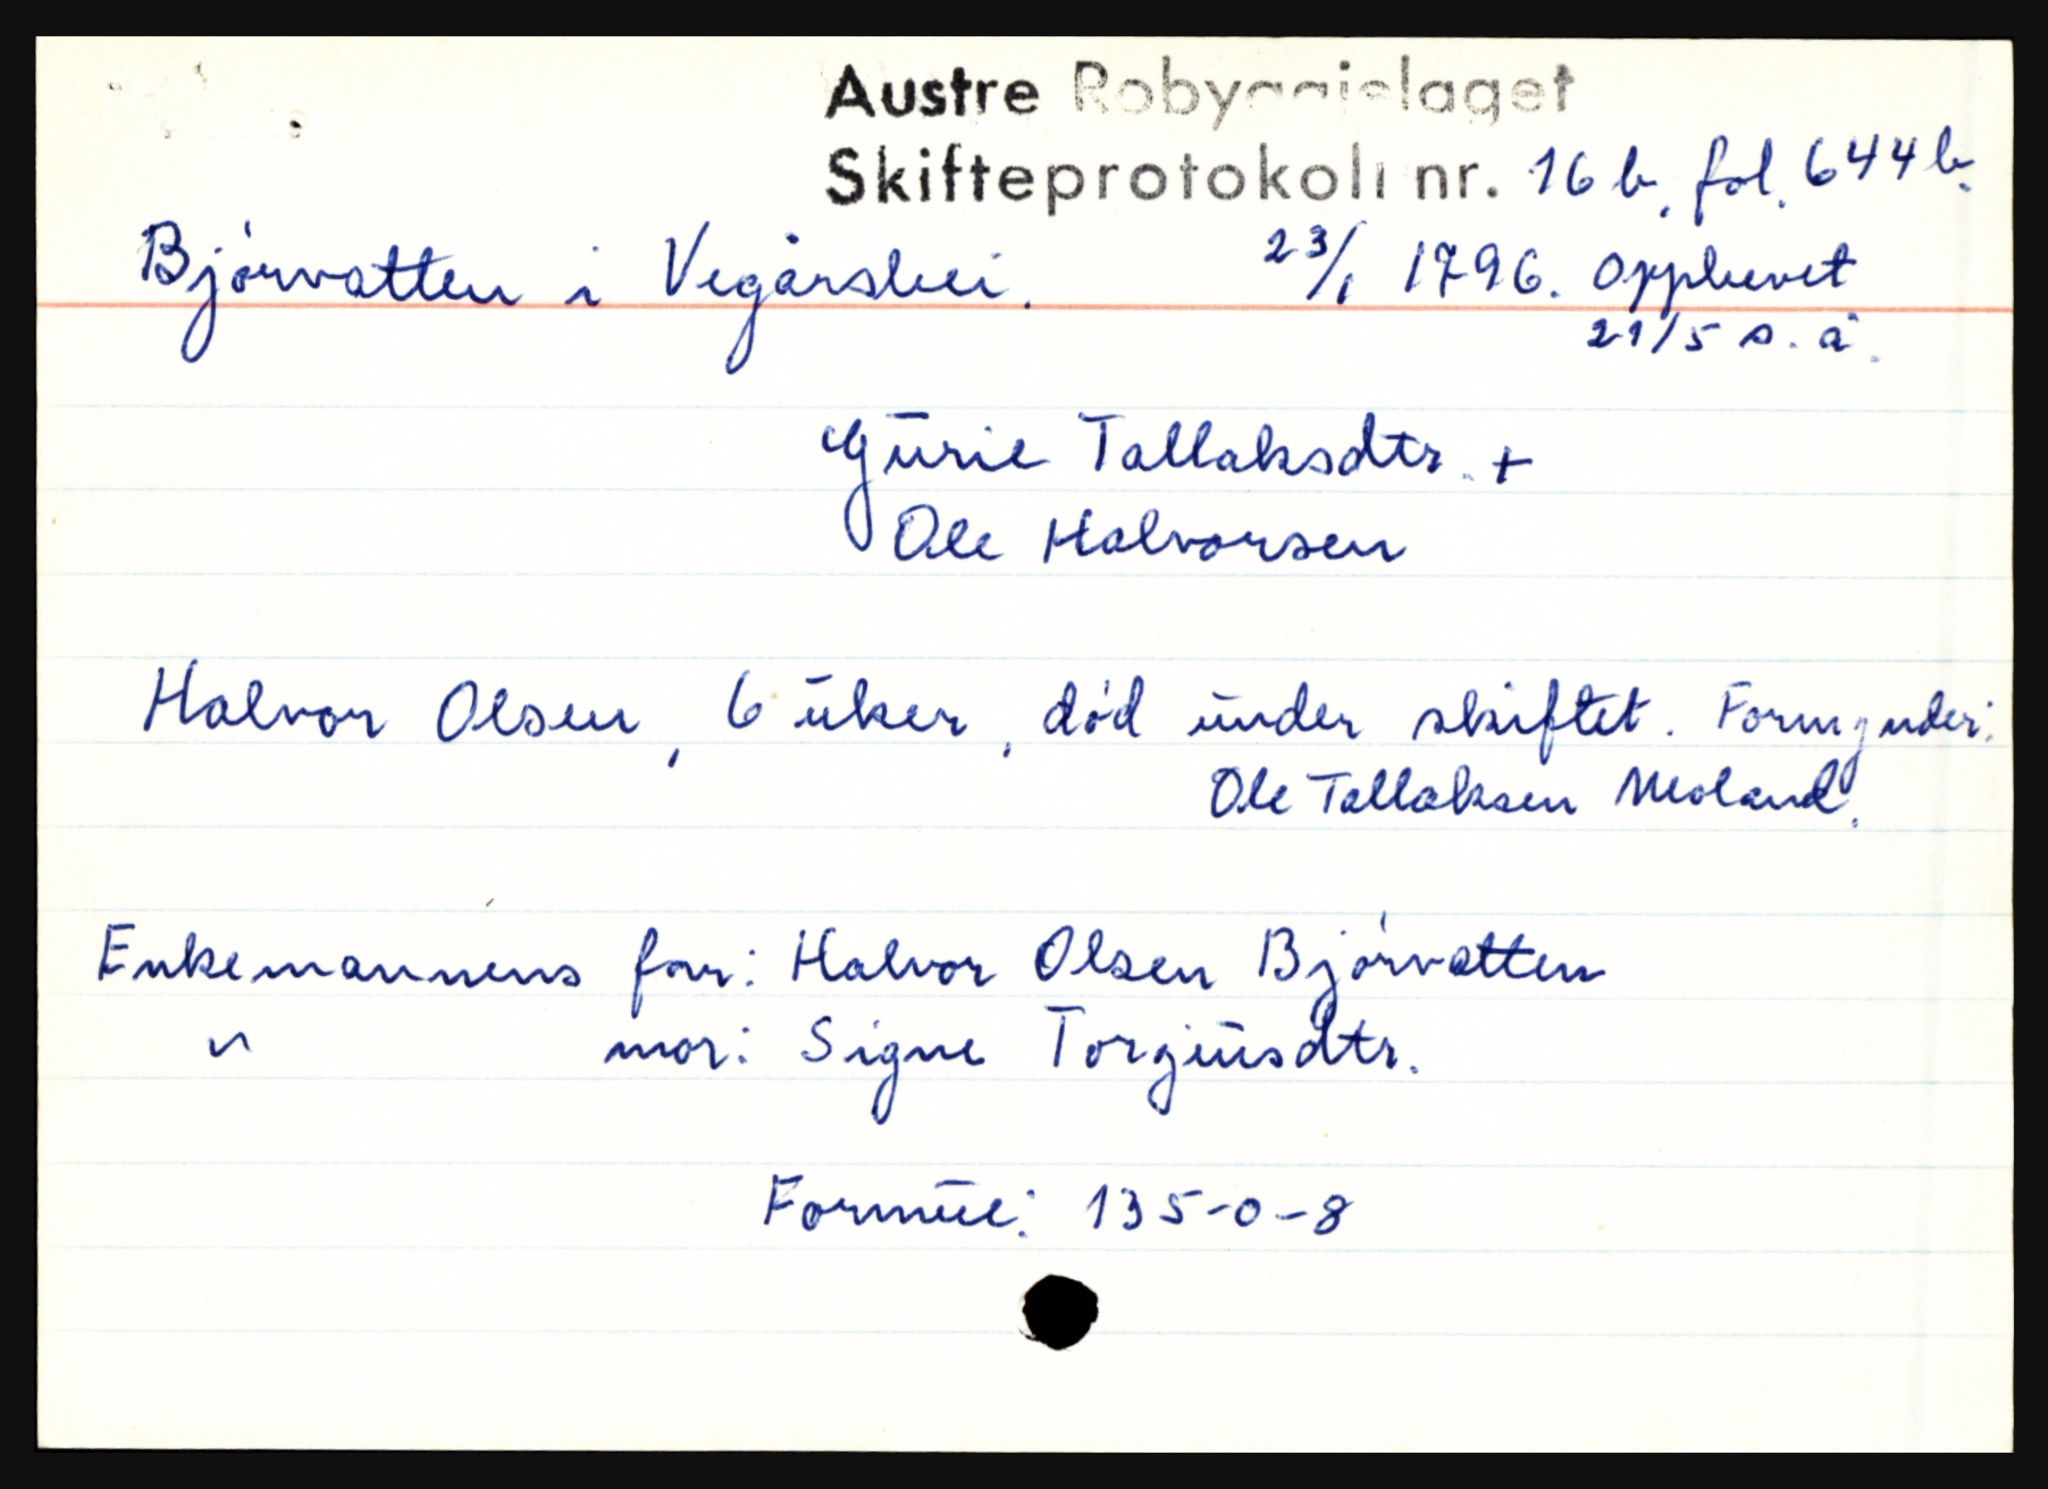 Austre Robyggjelaget
Skifteprotokoll nr. 16 b, fol. 644 b.
Bjørvatten i Vegårshei. 23/1 1796. Opphevet
21/5 s. å.
Gurie Tallaksdtr. +
Ole Halvorsen
Halvor Olsen, 6 uker, død under skiftet. Formynder:
Ole Tallaksen Moland.
Enkemannens far: Halvor Olsen Bjørvatten
" mor: Signe Torgiusdtr.
Formue: 135-0-8